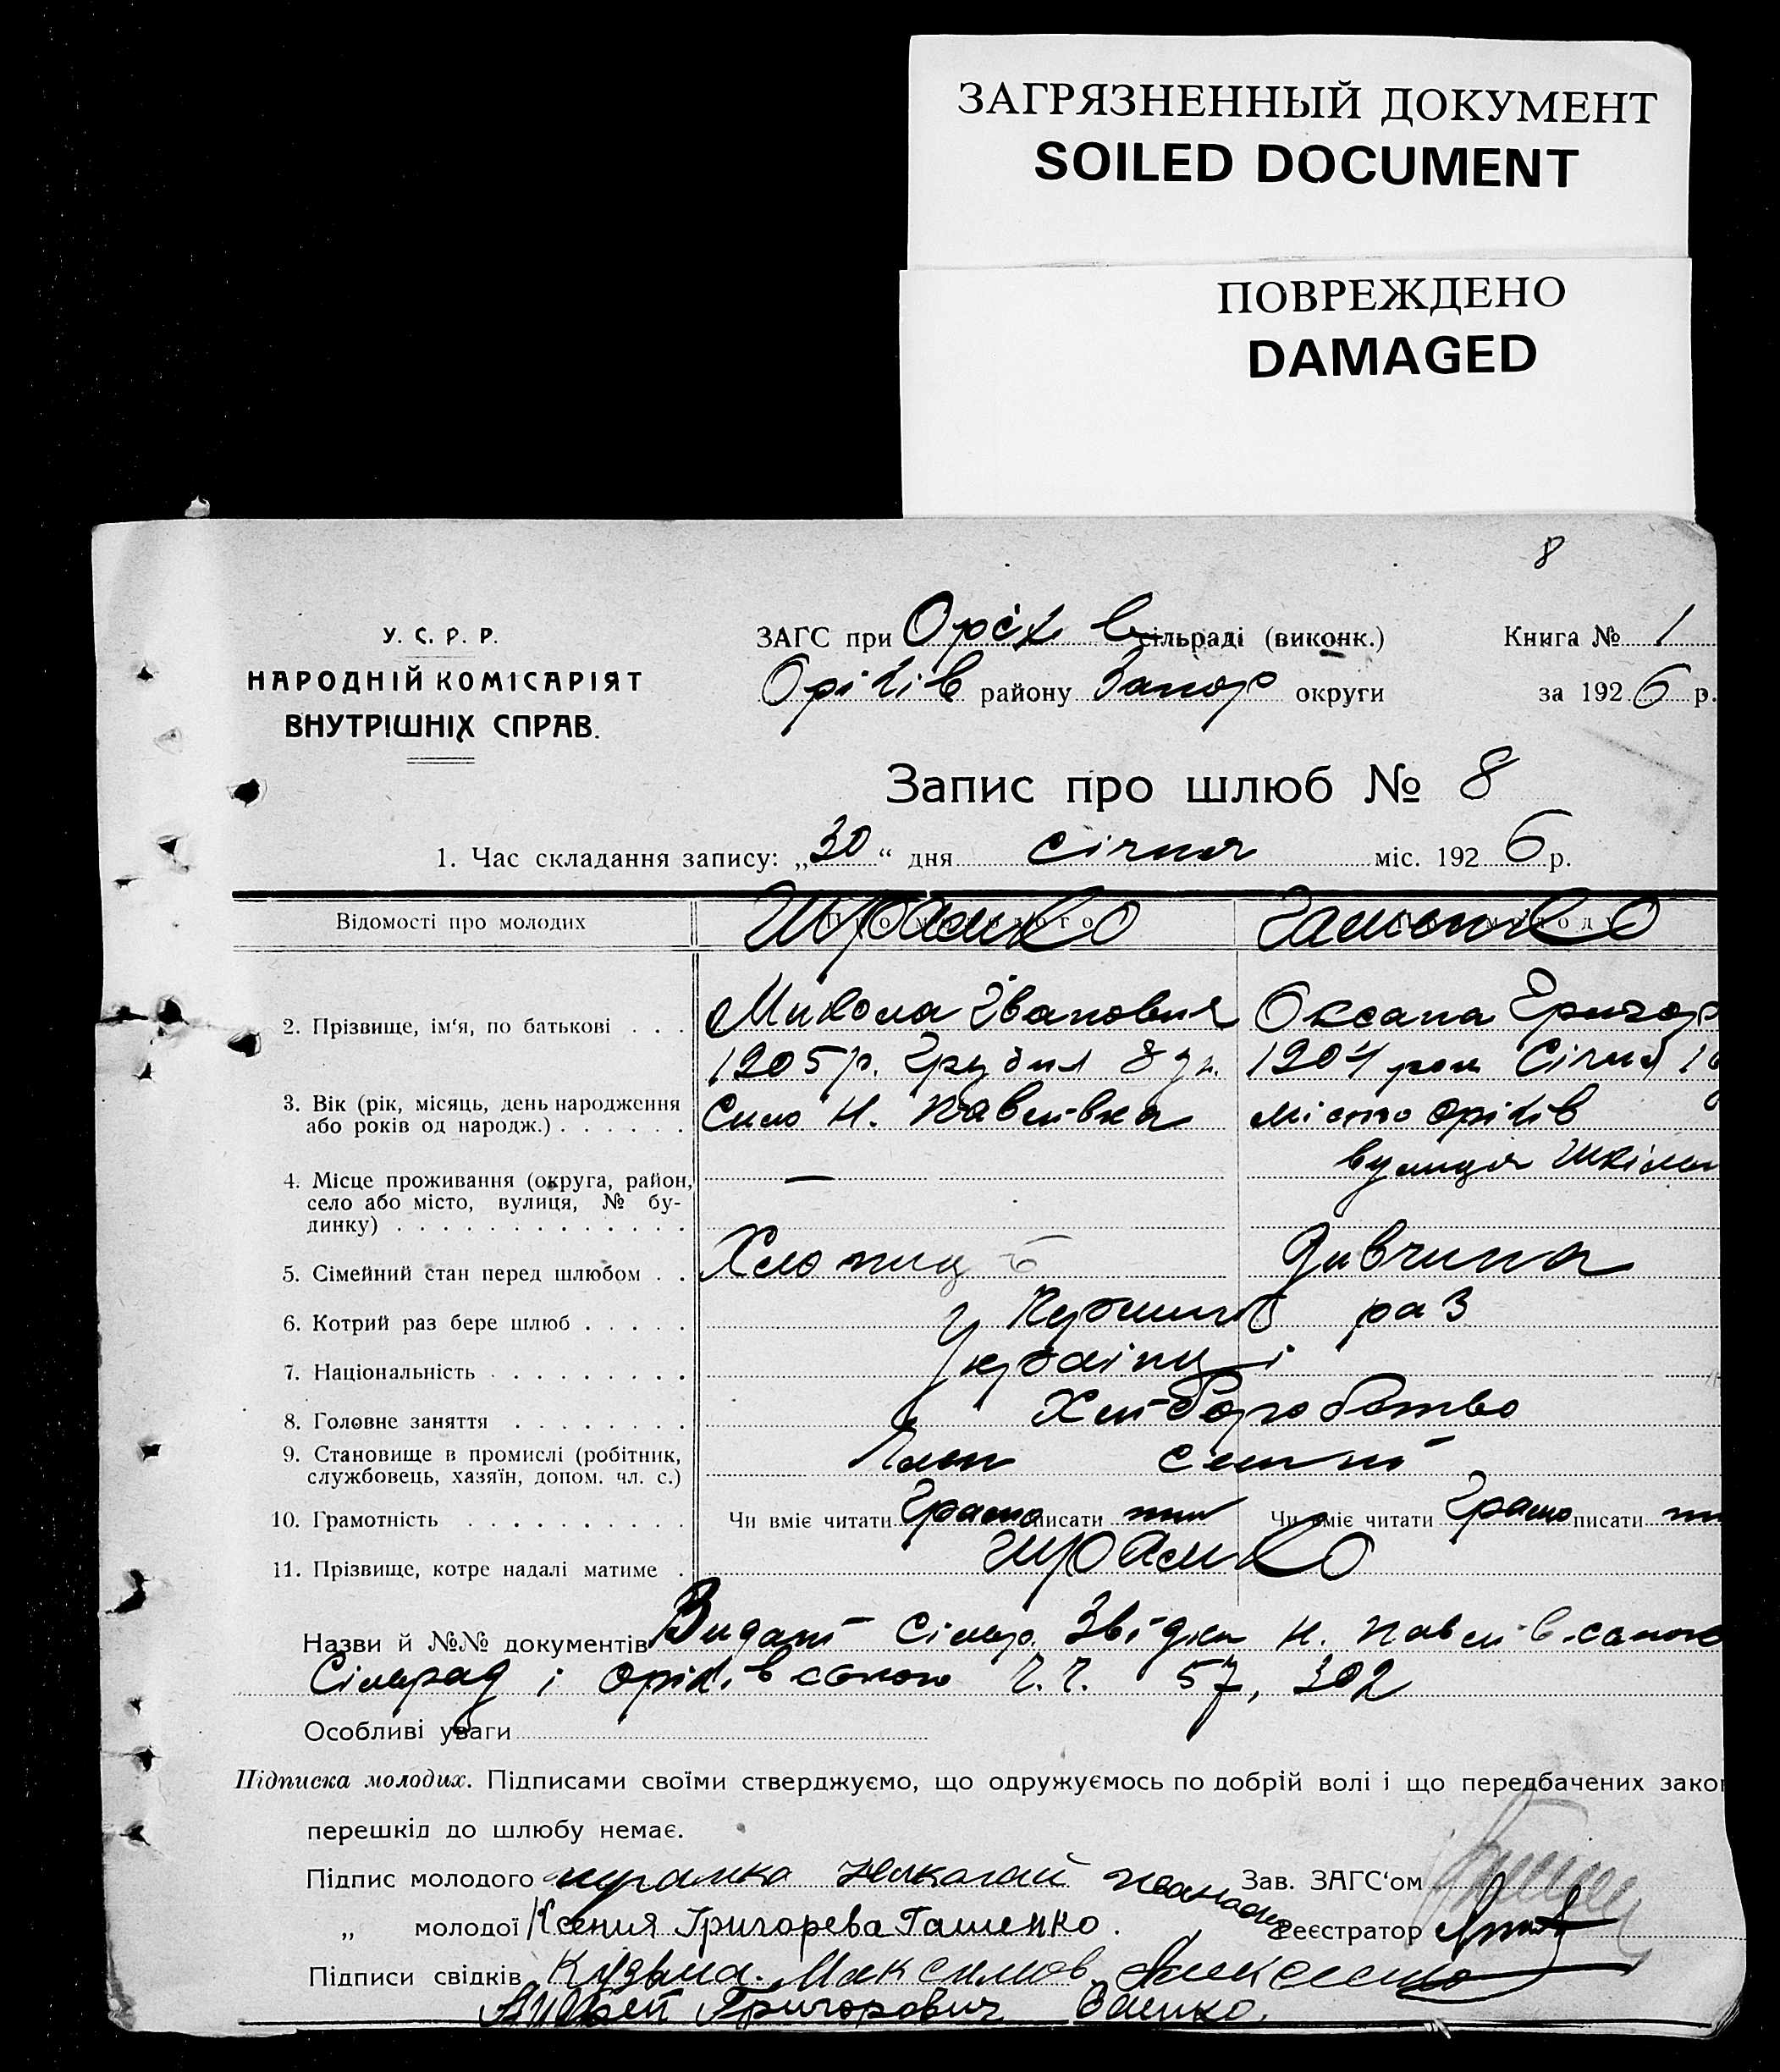 ЗАГРЯЗНЕННЫЙ ДОКУМЕНТ
SOILED DOCUMENT
ПОВРЕЖДЕНО
DAMAGED
8
У. С. Р. Р.
НАРОДНІЙ КОМІСАРІЯТ
ВНУТРІШНІХ СПРАВ.
ЗАГС при Оріх в сільраді (виконк.)
Книга № 1
Оріхів району Запор округи
за 1926 р.
Запис про шлюб № 8
1. Час складання запису: „30“ дня січня міс. 1926 р.
Відомості про молодих
Шрамко
Гашенко
2. Прізвище, ім'я, по батькові . . .
Микола Іванович
Оксана Григор
1905 р. Грудня 8 дн.
1904 рок Січня
3. Вік (рік, місяць, день народження
або років од народж.) . . . . . .
Село Н. Павлівка
місто Оріхів
вулиця Шкільн
4. Місце проживання (округа, район,
село або місто, вулиця, № бу-
динку) . . . . . . . . . . . .
—
5. Сімейний стан перед шлюбом . .
Хлопець
Дивчина
6. Котрий раз бере шлюб . . . . .
У Перший раз
7. Національність . . . . . . . . .
Українці
8. Головне заняття . . . . . . . .
Хліборобство
9. Становище в промислі (робітник,
службовець, хазяїн, допом. чл. с.)
Член семї
10. Грамотність . . . . . . . . . .
Чи вміє читати Грамо писати тни
Чи вміє читати Грамо писати
11. Прізвище, котре надалі матиме .
Шрамко
Назви й №№ документів Видані Сільр. Звідки Н. Павлівською
Сільрад і Оріхівською Ч.Ч. 57, 302
Особливі уваги
Підписка молодих. Підписами своїми стверджуємо, що одружуємось по добрій волі і що передбачених зако
перешкід до шлюбу немає.
Підпис молодого шрамко Николай
Зав. ЗАГС'ом
„ молодої Ксения Григорева Гашенко.
Реєстратор
Підписи свідків Кузьма Максимов
Андрей Григорович